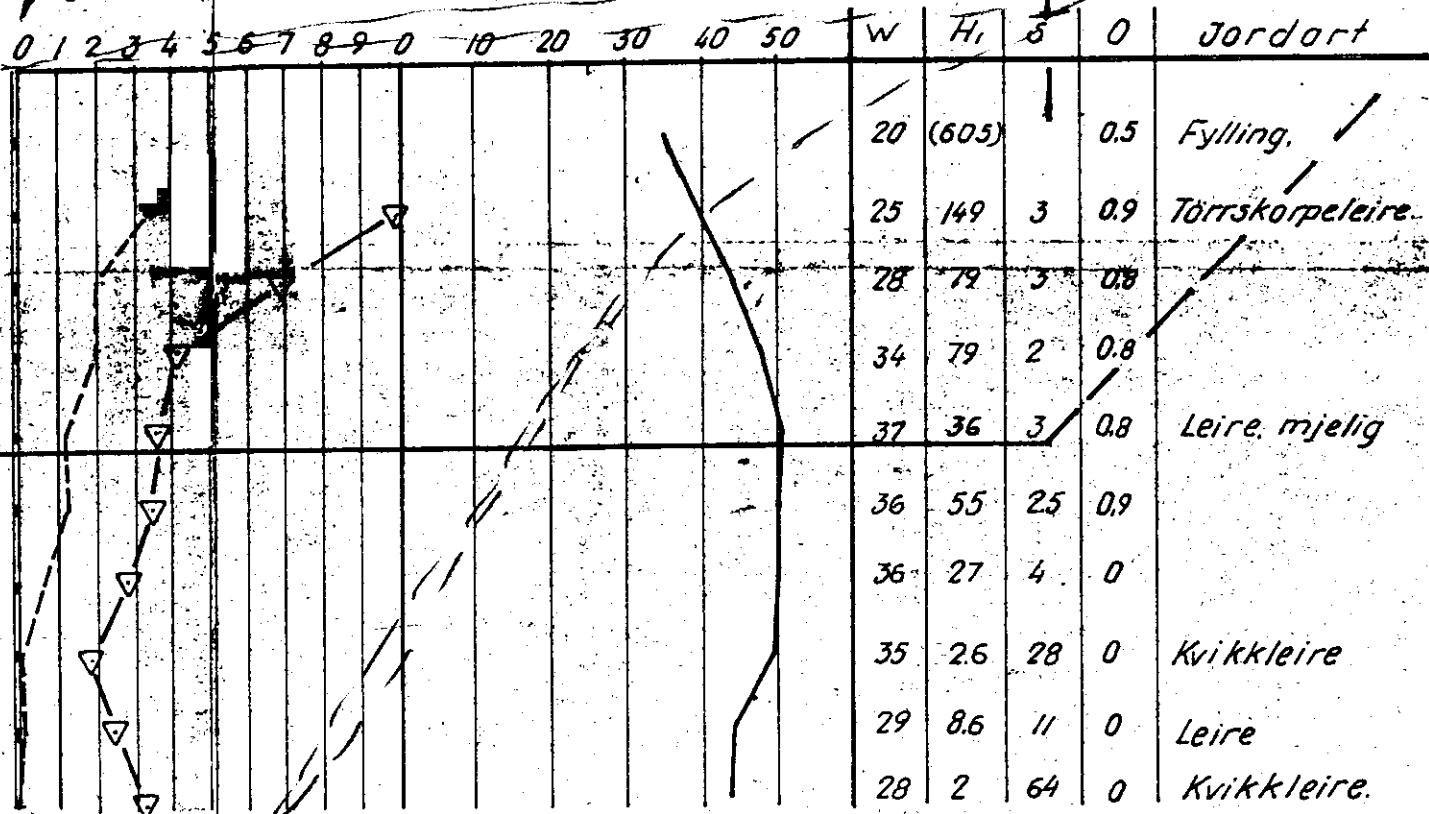 0 1 2 3 4 5 6 7 8 9 0 10 20 30 40 50 W H₁ S O Jordart
20 (605) 0.5 Fylling.
25 149 3 0.9 Törrskorpeleire.
28 79 3 0.8
34 79 2 0.8
37 36 3 0.8 Leire. mjelig
36 55 2.5 0.9
36 27 4 0
35 2.6 28 0 Kvikkleire
29 8.6 11 0 Leire
28 2 64 0 Kvikkleire.